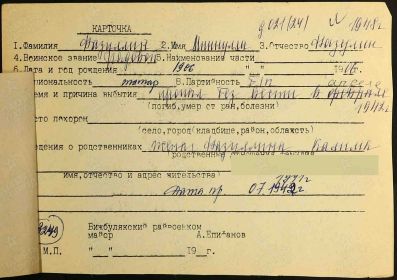 д 021/24/ 1948г
КАРТОЧКА
1.Фамилия Фазуллин 2.Имя Миннулла 3.Отчество Фазулин
4.Воинское звание рядовой 5.Наименование части
6.Дата и год рождения 1906 1906
циональность татар 8.Партийность б/п
емя и причина выбытия пропал без вести в феврале
1942г
(погиб,умер от ран,болезни)
сто похорон
(село,город(кладбище,район,область)
едения о родственниках жена Фазуллина
(родственные
имя,отчество и адрес жительства)
Дата пр. 07.1942г
249
Бижбулякский райвоенком
майор А.Епифанов
М.П. "__"________19__г.